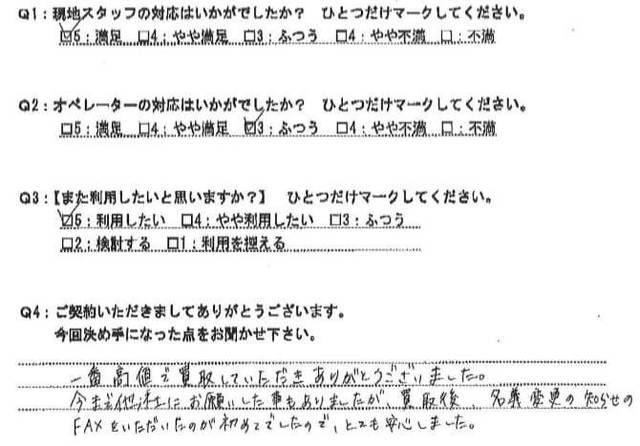 Q1：現地スタッフの対応はいかがでしたか？　ひとつだけマークしてください。
☑5：満足　□4：やや満足　□3：ふつう　□4：やや不満　□：不満
Q2：オペレーターの対応はいかがでしたか？　ひとつだけマークしてください。
□5：満足　□4：やや満足　☑3：ふつう　□4：やや不満　□：不満
Q3：【また利用したいと思いますか？】　ひとつだけマークしてください。
☑5：利用したい　□4：やや利用したい　□3：ふつう
□2：検討する　□1：利用を控える
Q4：ご契約いただきましてありがとうございます。
今回決め手になった点をお聞かせ下さい。
一番高値で買取していただきありがとうございました。
今まで他社にお願いした事もありましたが、買取後、名義変更の知らせの
FAXをいただいたのが初めてでしたので、とても安心しました。